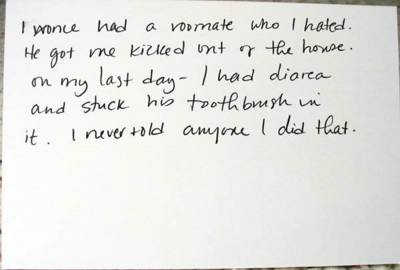 I once had a roomate who I hated.
He got me kicked out of the house.
on my last day- I had diarea
and stuck his toothbrush in
it. I never told anyone I did that.